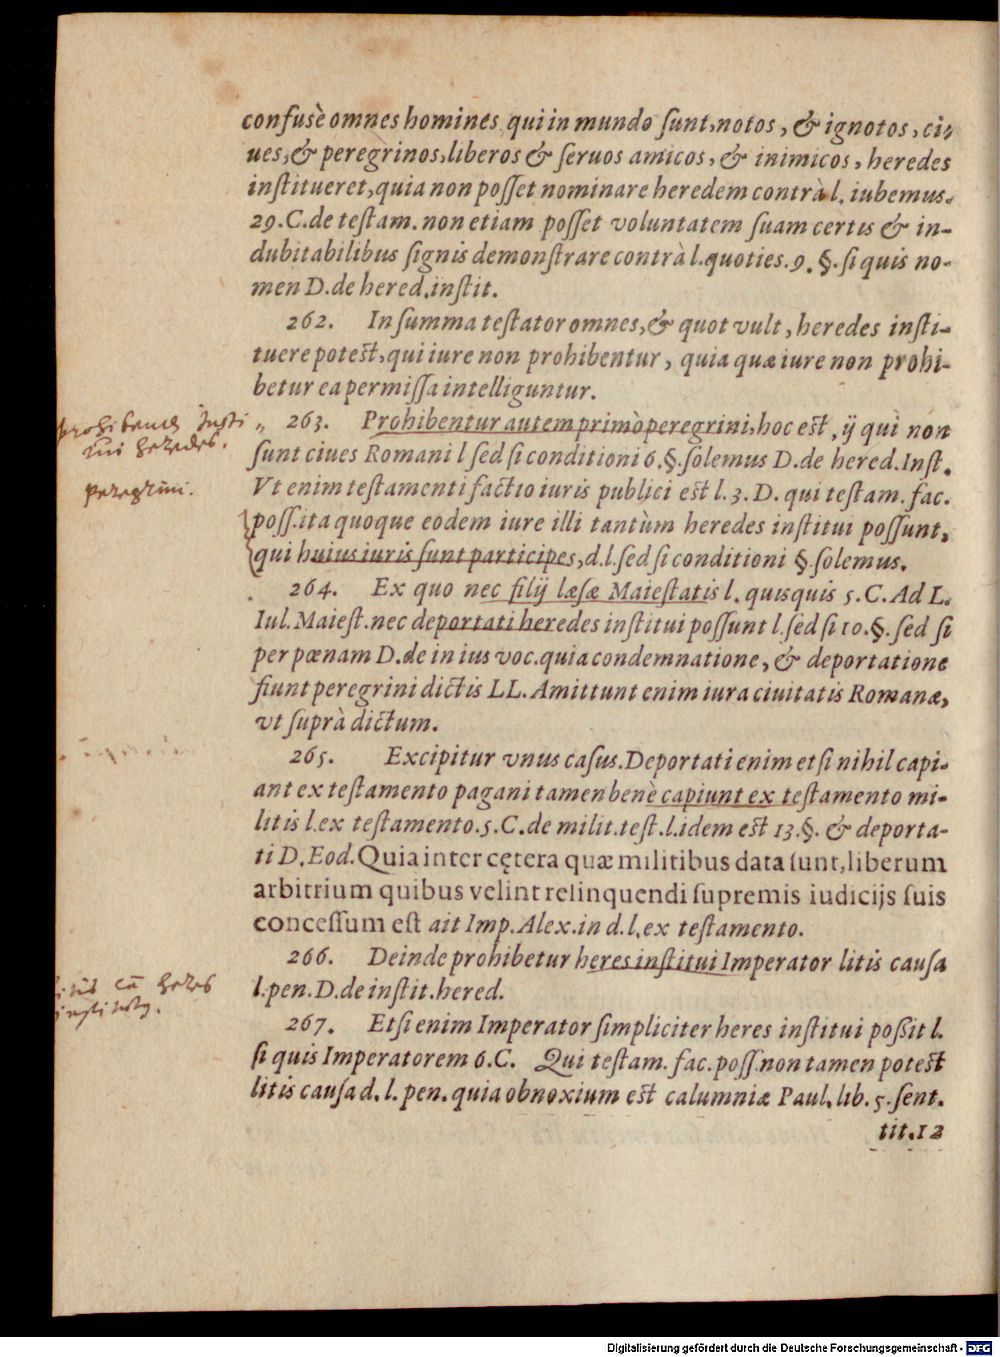 confusè omnes homines qui in mundo ſunt, notos, & ignotos, ci-
ues, & peregrinos, liberos & ſeruos amicos, & inimicos, heredes
inſtitueret, quia non poſſet nominare heredem contrà l. iubemus.
29. C. de teſtam. non etiam poſſet voluntatem ſuam certis & in-
dubitabilibus ſignis demonſtrare contrà l. quoties. 9. §. ſi quis no-
men D. de hered. inſtit.
262. In ſumma teſtator omnes, & quot vult, heredes inſti-
tuere poteſt, qui iure non prohibentur, quia quæ iure non prohi-
betur ea permiſſa intelliguntur.
prohibentur insti
tui heredes.
„ 263. Prohibentur autem primò peregrini, hoc eſt, ij qui non
ſunt ciues Romani l ſed ſi conditioni 6. §. ſolemus D. de hered. Inſt.
peregrini.
Vt enim teſtamenti factio iuris publici eſt l. 3. D. qui teſtam. fac.
poſſ. ita quoque eodem iure illi tantùm heredes inſtitui poſſunt,
qui huius iuris ſunt participes, d. l. ſed ſi conditioni §. ſolemus.
264. Ex quo nec filij læſæ Maieſtatis l. quisquis 5. C. Ad L.
Iul. Maieſt. nec deportati heredes inſtitui poſſunt l. ſed ſi 10. §. ſed ſi
per pœnam D. de in ius voc. quia condemnatione, & deportatione
fiunt peregrini dictis LL. Amittunt enim iura ciuitatis Romanæ,
vt ſuprà dictum.
265. Excipitur vnus caſus. Deportati enim etſi nihil capi-
ant ex teſtamento pagani tamen benè capiunt ex teſtamento mi-
litis l. ex teſtamento. 5. C. de milit. teſt. l. idem eſt 13. §. & deporta-
ti D. Eod. Quia inter cętera quæ militibus data ſunt, liberum
arbitrium quibus velint relinquendi ſupremis iudicijs ſuis
conceſſum eſt ait Imp. Alex. in d. l. ex teſtamento.
266. Deinde prohibetur heres inſtitui Imperator litis cauſa
l. pen. D. de inſtit. hered.
litis cā heres
267. Etſi enim Imperator ſimpliciter heres inſtitui poßit l.
ſi quis Imperatorem 6. C. Qui teſtam. fac. poſſ. non tamen poteſt
litis cauſa d. l. pen. quia obnoxium eſt calumniæ Paul. lib. 5. ſent.
tit. 12
Digitalisierung gefördert durch die Deutsche Forschungsgemeinschaft - DFG